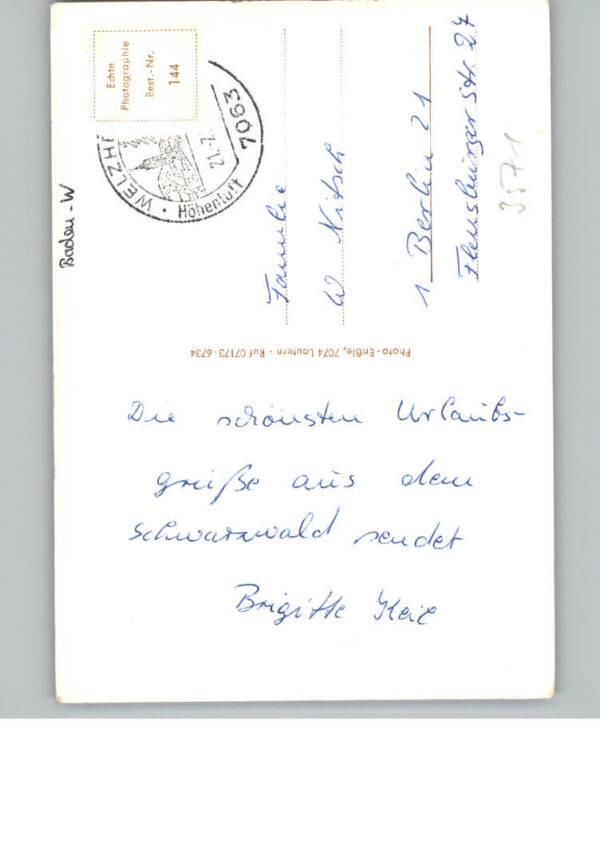 Die schönsten Urlaubs-
grüße aus dem
Schwarzwald sendet
Brigitte Keil
Photo-Enßle, 7074 Lautern · Ruf 07173-6734
Echte
Photographie
Best.-Nr.
144
WELZHEI
7063
21.-7.
Höhenluft
Familie
W Nitsch
1 Berlin 21
Flensburger Str. 27
3571
Baden-W